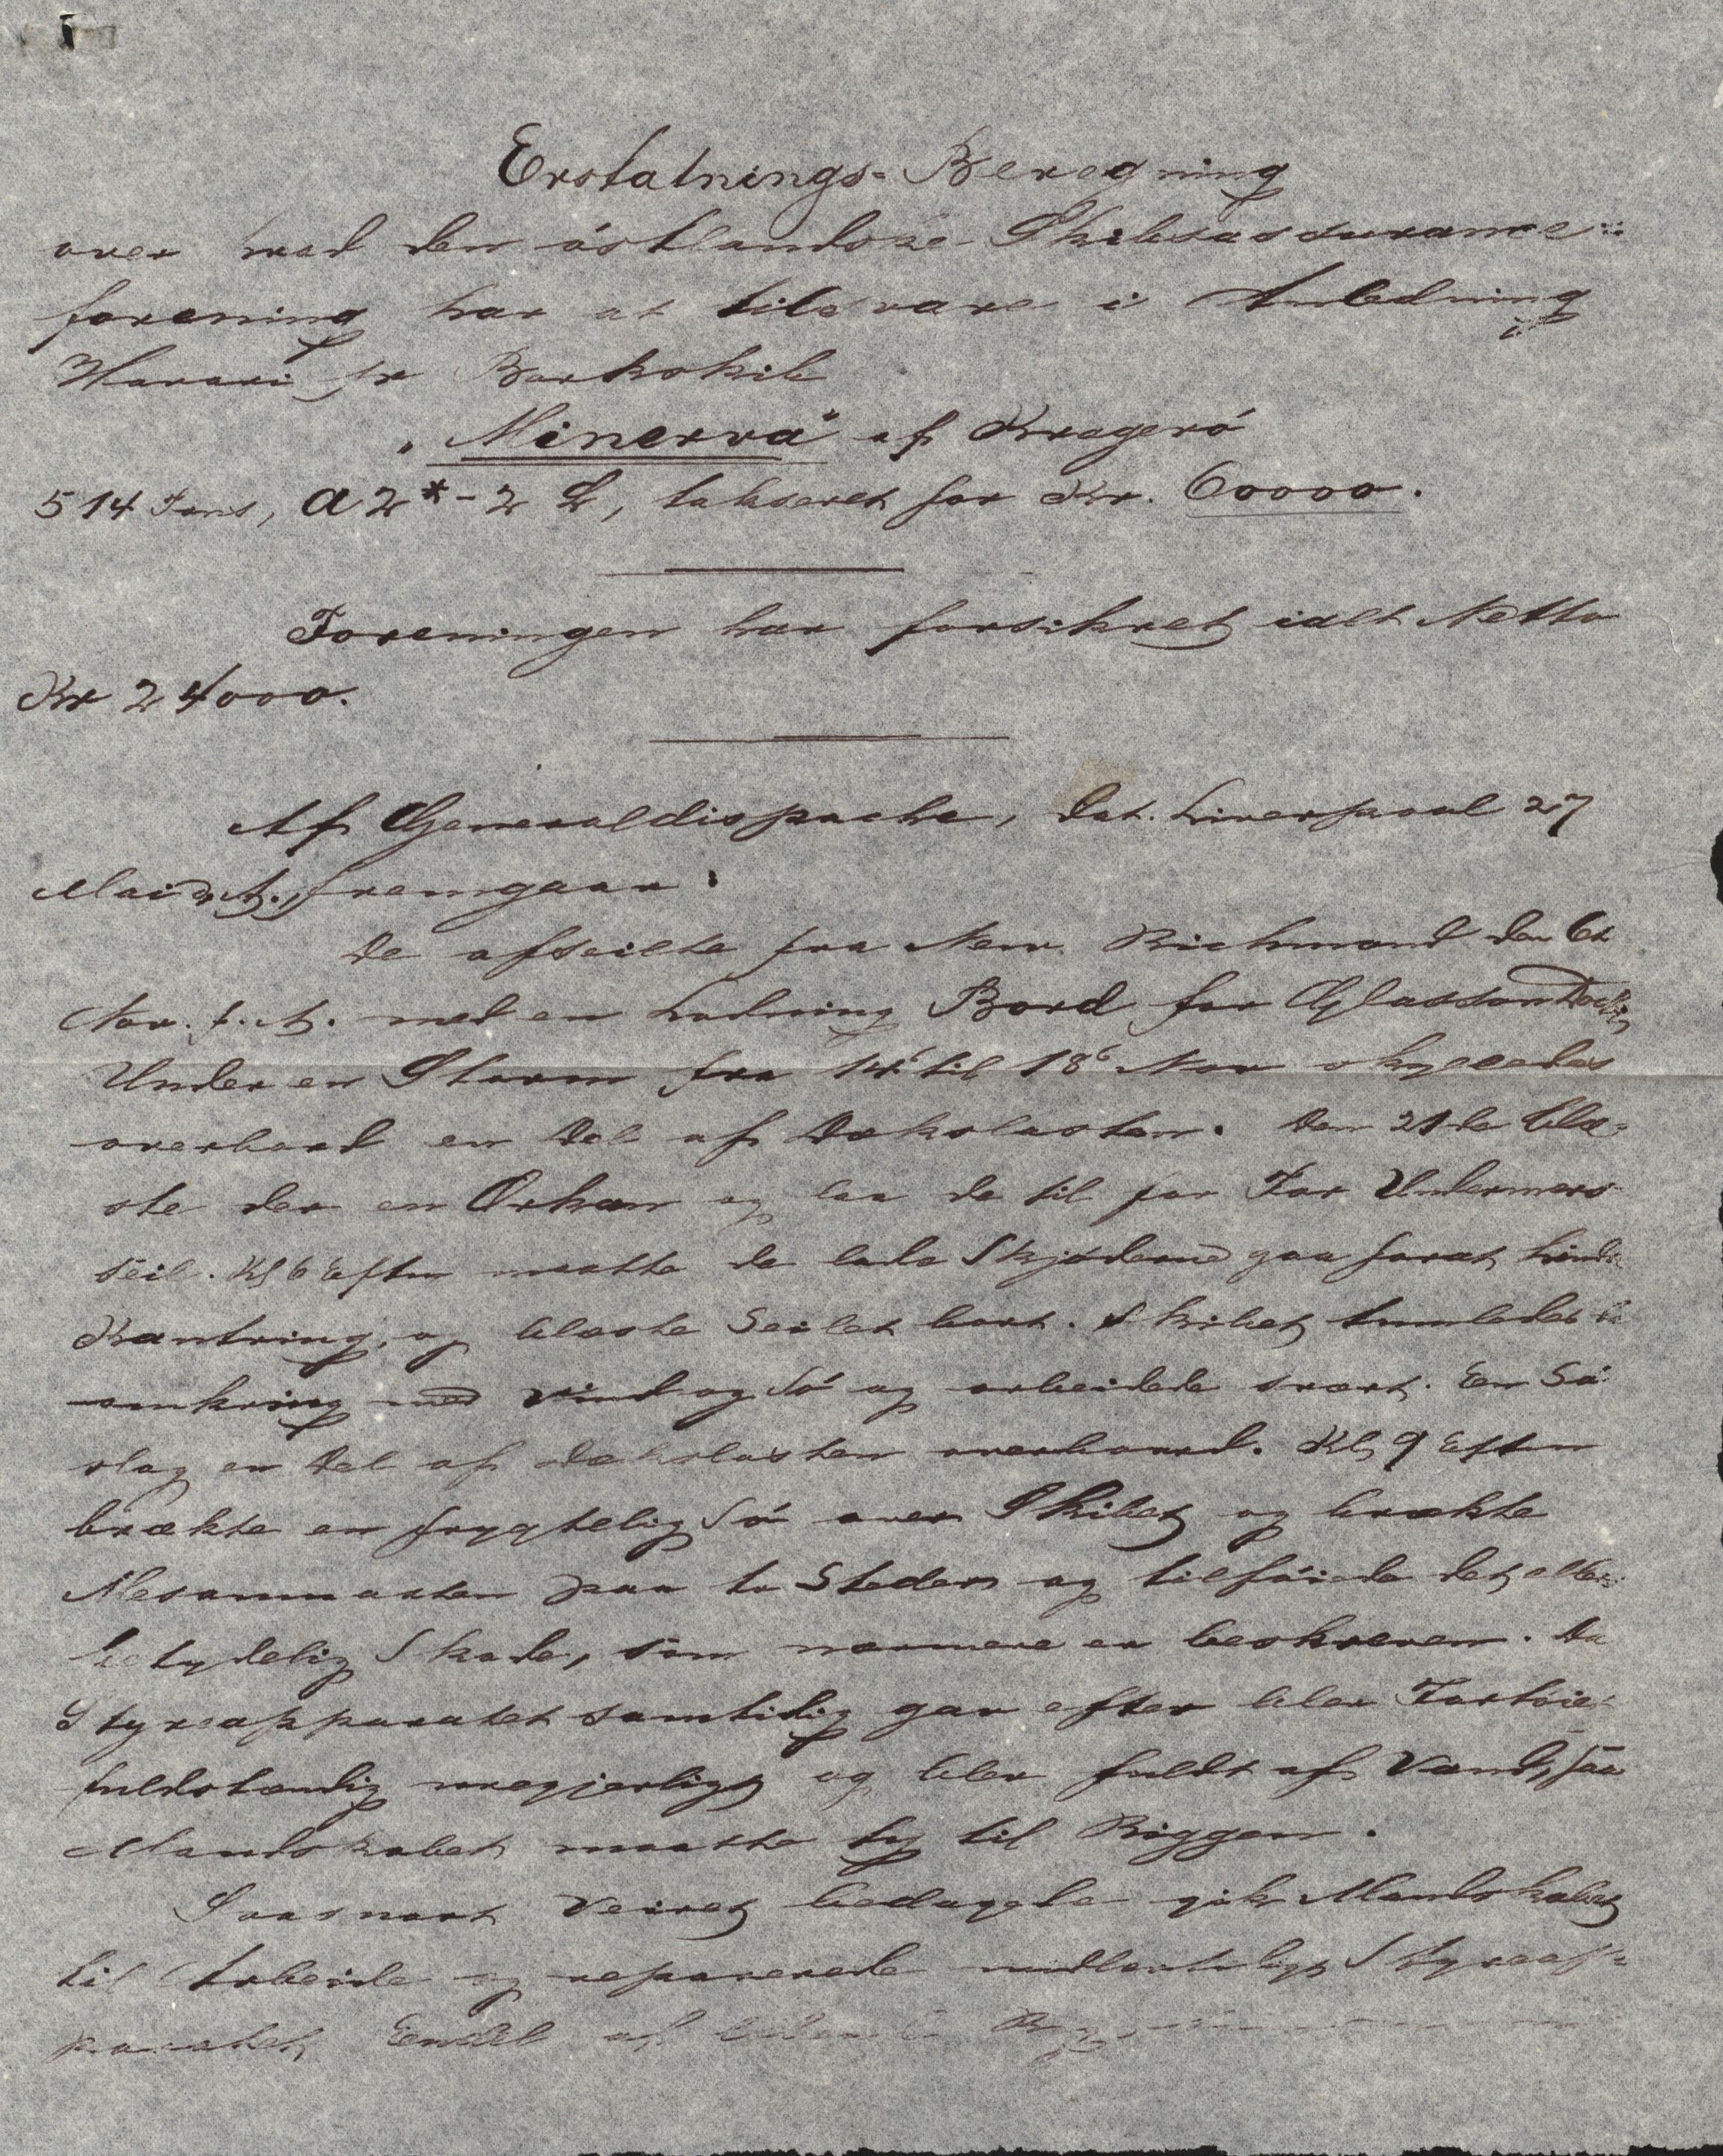 Erstatnings-Beregning
over hvad den östlandske Skibsassurance=
forening har at tilsvare i Anledning
Havari pr Barkskib
„Minerva" af Kragerö
514 Tons, A 2*-2 L, takseret for Kr. 60000.
Foreningen har forsikret ialt Netto
Kr 24000.
Af Generaldispache, dat. Liverpool 27
Mai d. A., fremgaar:
De afseilte fra New Richmond den 6te
Nov. f. A. med en Ladning Bord for Glasson Dock,
Under en Storm fra 14 til 18 Nov skylledes
overbord en Del af Dækslasten. Den 21de blæ-
ste der en Orkan og laa de til for For Undermers
seil. Kl 6 Eftm maatte de lade Skjöderne gaa foråt hindre
Kantring, og blæste Seilet bort. Skibet tumledes
omkring med Vind og Sö og arbeidede svært. En Sö
slog en Del af Dækslasten overbord. Kl 9 Eftm
brækte en frygtelig Sö over Skibet og brækte
Mesanmasten paa to Steder og tilföiede det ellers
betydelig Skade, som nærmere er beskreven. Da
Styreapparatet samtidig gav efter blev Fartöiet
fuldstændig uregjerligt og blev fuldt af Vand, saa
Mandskabet maatte ty til Riggen.
Saasnart Veiret bedagede gik Mandskabet
til Arbeide og reparerede midlertidigt Styreap-
paratet, Endel af